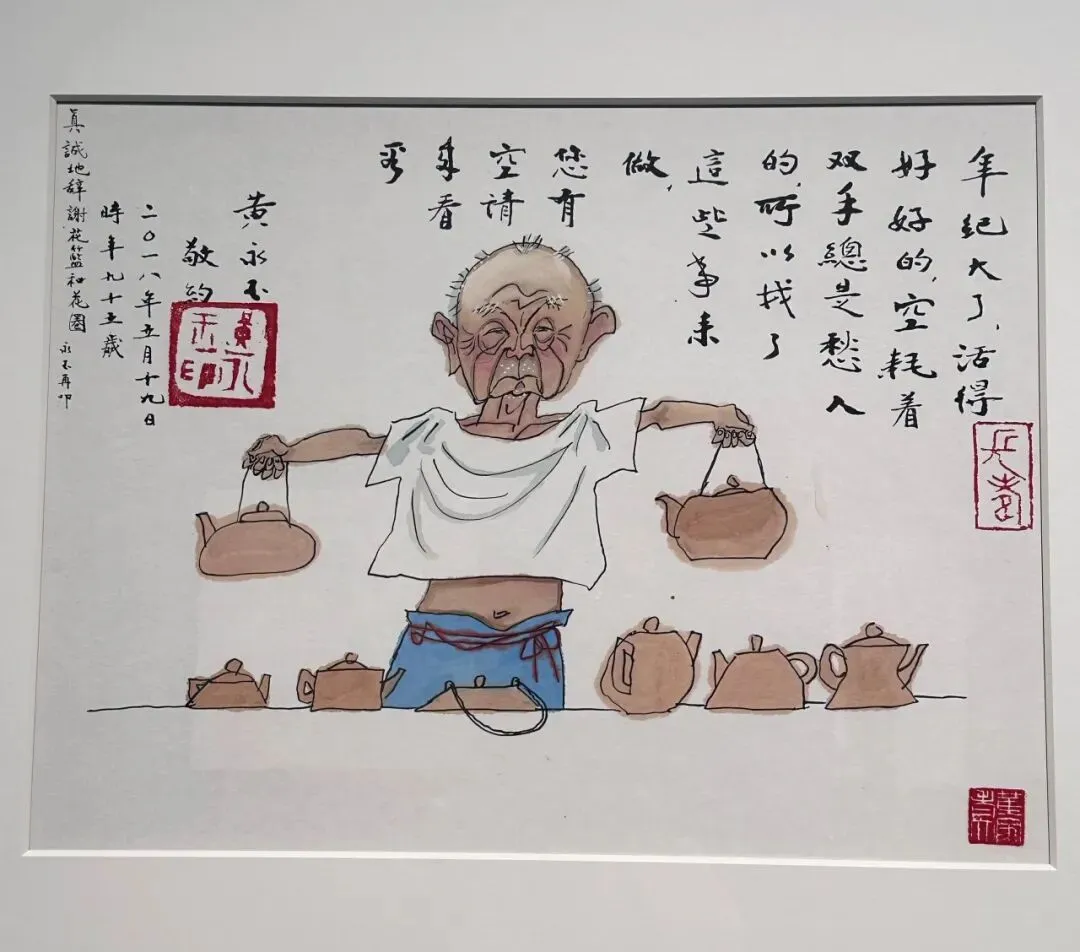 年纪大了，活得
好好的，空耗着
双手總是愁人
的，所以找了
這些事来
做，
您有
空请
来看
看
黄永玉
敬约
二〇一八年五月十九日
時年九十五歲
真誠地辞謝花籃和花圈
永玉再叩
黄永玉印